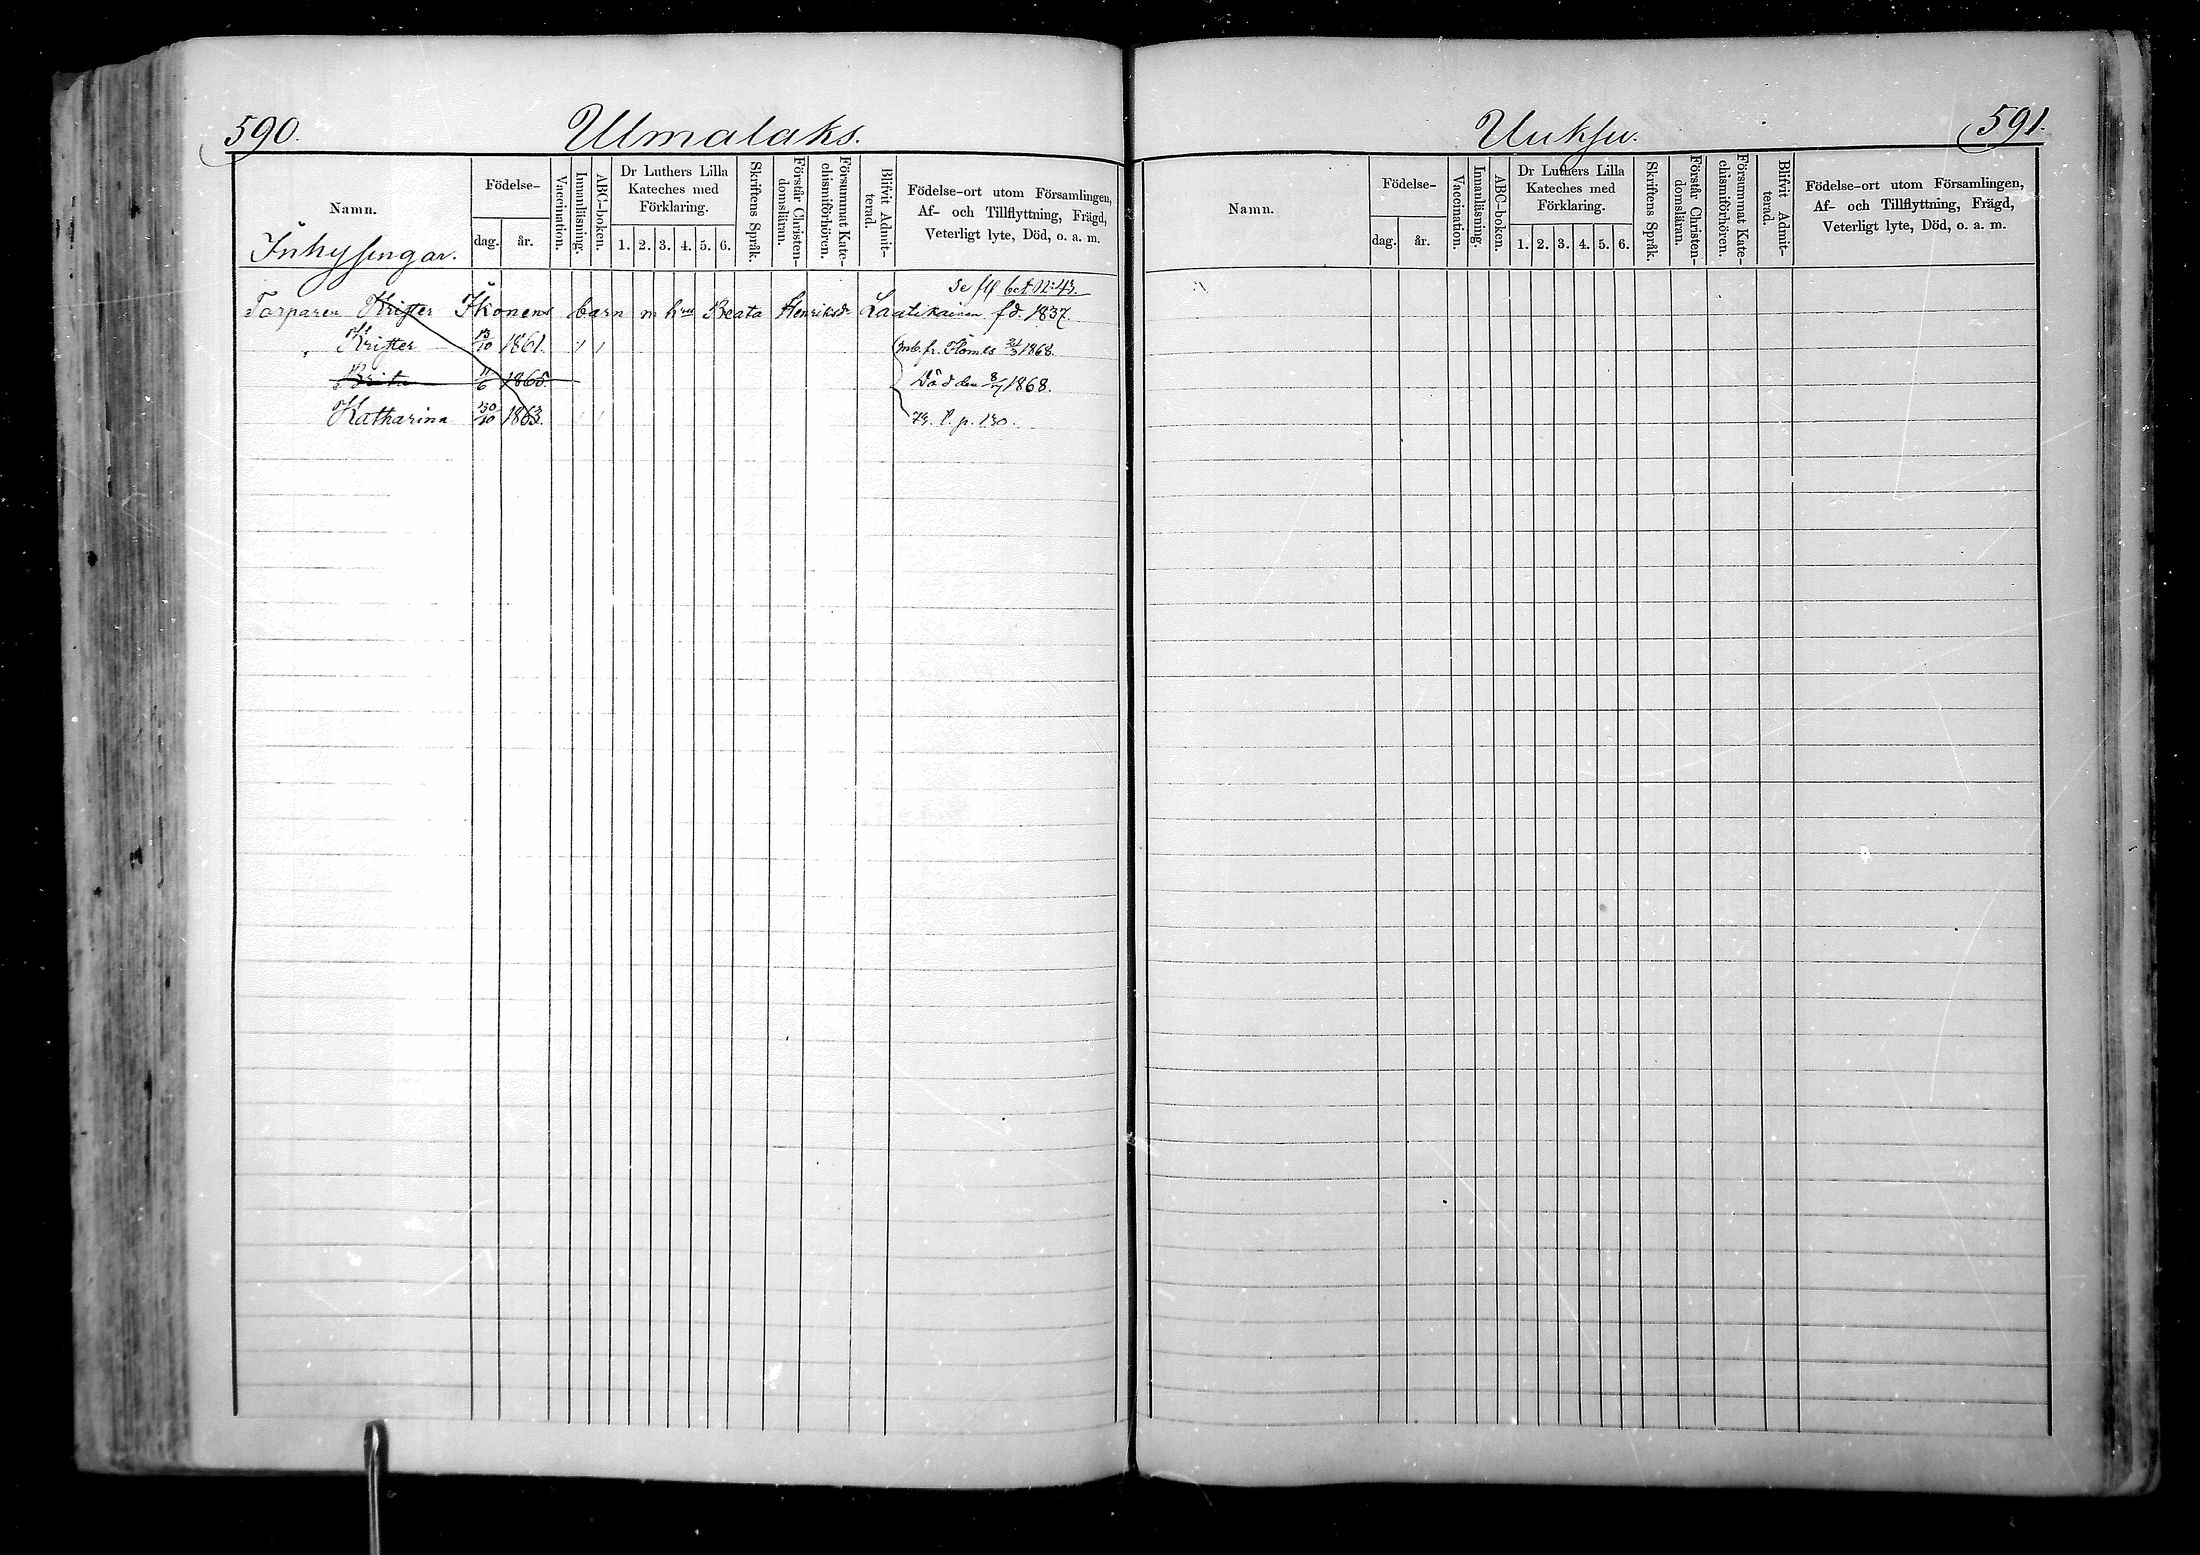 590.
Ulmalaks.
Namn.
Födelse-
dag.
år.
Vaccination.
Innanläsning.
ABC-boken.
Dr Luthers Lilla
Kateches med
Förklaring.
1. 2. 3. 4. 5. 6.
Skriftens Språk.
Förstår Christen-
domsläran.
Försummat Kate-
chismiförhören.
Blifvit Admit-
terad.
Födelse-ort utom Församlingen,
Af- och Tillflyttning, Frägd,
Veterligt lyte, Död, o. a. m.
Inhysingar.
Se bet. N:43.
Torparen Krister Ikonens barn m Beata Henriksdr Laatikainen fd. 1837.
Krister 13/10 1861. fr. 1868.
Brita 11/6 1865 Död den 8/7 1868.
Katharina 30/10 1863. p. 130.
Uuksu.
591.
Namn.
Födelse-
dag.
år.
Vaccination.
Innanläsning.
ABC-boken.
Dr Luthers Lilla
Kateches med
Förklaring.
1. 2. 3. 4. 5. 6.
Skriftens Språk.
Förstår Christen-
domsläran.
Försummat Kate-
chismiförhören.
Blifvit Admit-
terad.
Födelse-ort utom Församlingen,
Af- och Tillflyttning, Frägd,
Veterligt lyte, Död, o. a. m.